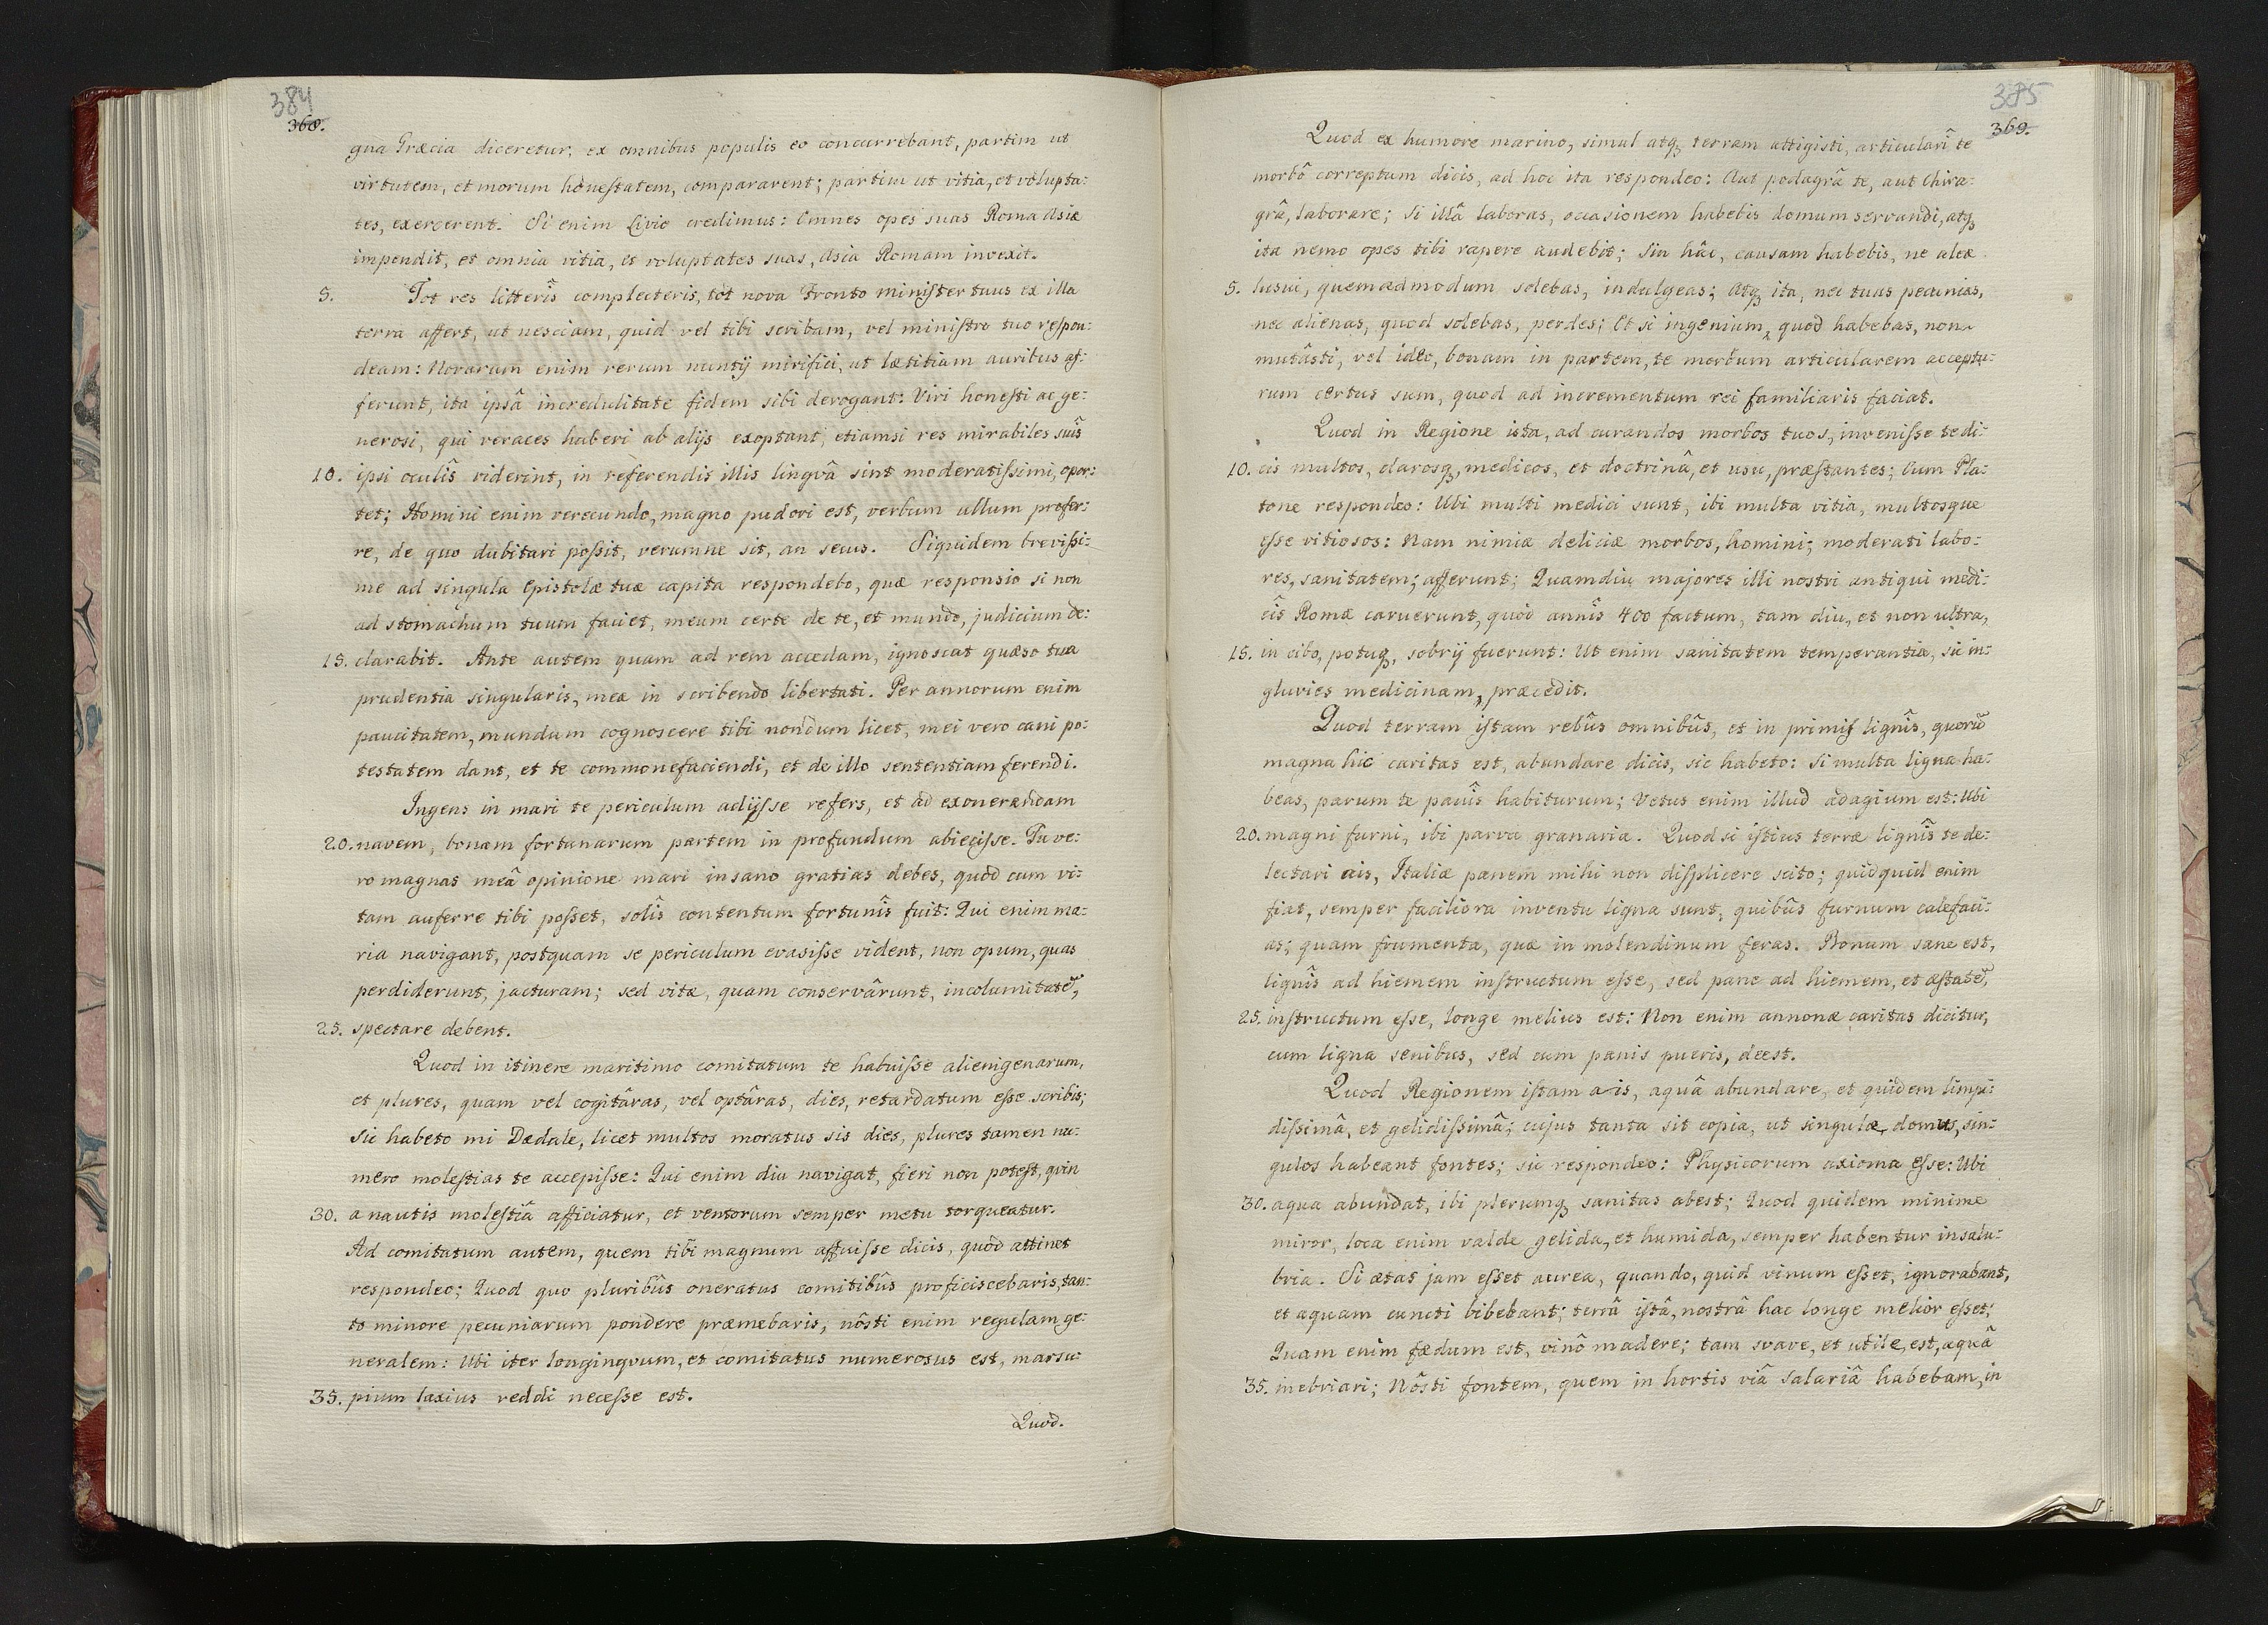 384
368.
gna Græcia diceretur, ex omnibus populis eo concurrebant, partim ut
virtutem, et morum honestatem, compararent; partim ut vitia, et volupta:
tes, exercerent. Si enim Livio credimus: Omnes opes suas Roma Asiæ
impendit, et omnia vitia, et voluptates suas, Asia Romam invexit.
5. Tot res litterîs complecteris, tot nova Fronto minister tuus ex illa
terra affert, ut nesciam, quid vel tibi scribam, vel ministro tuo respon:
deam: Novarum enim rerum nuntij mirifici, ut lætitiam auribus af:
ferunt, ita ipsâ incredulitate fidem sibi derogant: Viri honesti ac ge:
nerosi, qui veraces haberi ab alijs exoptant, etiamsi res mirabiles suîs
10. ipsi oculîs viderint, in referendis illis linguâ sint moderatissimi, opor:
tet; Homini enim verecundo, magno pudori est, verbum ullum profer:
re, de quo dubitari possit, verumne sit, an secus. Siquidem brevissi:
me ad singula Epistolæ tuæ capita respondebo, quæ responsio si non
ad stomachum tuum faciet, meum certe de te, et mundo, judicium de:
15. clarabit. Ante autem quam ad rem accedam, ignoscat quæso tua
prudentia singularis, meæ in scribendo libertati. Per annorum enim
paucitatem, mundum cognoscere tibi nondum licet, mei vero cani po:
testatem dant, et te commonefaciendi, et de illo sententiam ferendi.
Ingens in mari te periculum adijsse refers, et ad exonerandam
20. navem, bonam fortunarum partem in profundum abiecisse. Tu ve:
ro magnas meâ opinione mari insano gratias debes, quod cum vi:
tam auferre tibi posset, solîs contentum fortunîs fuit: Qui enim ma:
ria navigant, postquam se periculum evasisse vident, non opum, quas
perdiderunt, jacturam; sed vitæ, quam conservârunt, incolumitatē,
25. spectare debent.
Quod in itinere maritimo comitatum te habuisse alienigenarum,
et plures, quam vel cogitâras, vel optâras, dies, retardatum esse scribis;
Sic habeto mi Dædale, licet multos moratus sis dies, plures tamen nu:
mero molestias te accepisse: Qui enim diu navigat, fieri non potest, quin
30. a nautis molestiâ afficiatur, et ventorum semper metu torqueatur.
Ad comitatum autem, quem tibi magnum affuisse dicis, quod attinet
respondeo; Quod quo pluribûs oneratus comitibûs proficiscebaris, tan:
to minore pecuniarum pondere præmebaris; nôsti enim regulam ge:
neralem: Ubi iter longinquum, et comitatus numerosus est, marsu:
35. pium laxius reddi necesse est.
Quod.
385
369.
Quod ex humore marino, simul atq; terram attigisti, articularî te
morbô correptum dicis, ad hoc ita respondeo: Aut podagrâ te, aut Chira:
grâ, laborare; Si illâ laboras, occasionem habebis domum servandi, atq;
ita nemo opes tibi rapere audebit; Sin hâc, causam habebis, ne aleæ
5. lusui, quemadmodum solebas, indulgeas; Atq; ita, nec tuas pecunias,
nec alienas, quod solebas, perdes; Et si ingenium, quod habebas, non
mutâsti, vel ideo, bonam in partem, te morbum articularem acceptu:
rum certus sum, quod ad incrementum rei familiaris faciat.
Quod in Regione ista, ad curandos morbos tuos, invenisse te di:
10. cis multos, clarosq; medicos, et doctrinâ, et usu, præstantes; Cum Pla:
tone respondeo: Ubi multi medici sunt, ibi multa vitia, multosque
esse vitiosos: Nam nimiæ deliciæ morbos, homini; moderati labo:
res, sanitatem; afferunt; Quamdiu majores illi nostri antiqui medi:
cîs Romæ caruerunt, quod annîs 400 factum, tam diu, et non ultra,
15. in cibo, potuq; sobrij fuerunt: Ut enim sanitatem temperantia, sic in:
gluvies medicinam, præcedit.
Quod terram istam rebûs omnibûs, et in primis lignîs, quorū
magna hic caritas est, abundare dicis, sic habeto: Si multa ligna ha:
beas, parum te panîs habiturum; Vetus enim illud adagium est: Ubi
20. magni furni, ibi parva granaria. Quod si istius terræ lignîs te de:
lectari ais, Italiæ panem mihi non displicere scito; quidquid enim
fiat, semper faciliora inventu ligna sunt, quibûs furnum calefaci:
as; quam frumenta, quæ in molendinum feras. Bonum sane est,
lignîs ad hiemem instructum esse, sed pane ad hiemem, et æstatē,
25. instructum esse, longe melius est: Non enim annonæ caritas dicitur,
cum ligna senibus, sed cum panis pueris, deest.
Quod Regionem istam ais, aquâ abundare, et quidem limpi:
dissimâ, et gelidissimâ; cujus tanta sit copia, ut singulæ domus, sin:
gulos habeant fontes; sic respondeo: Physicorum axioma esse: Ubi
30. aqua abundat, ibi plerumq; sanitas abest; Quod quidem minime
miror, loca enim valde gelida, et humida, semper habentur insalu:
bria. Si ætas jam esset aurea, quando, quid vinum esset, ignorabant,
et aquam cuncti bibebant; terrâ istâ, nostrâ hac longe melior esset;
Quam enim fædum est, vinô madere; tam svave, et utile, est, aquâ
35. inebriari; Nôsti fontem, quem in hortis viâ salariâ habebam, in